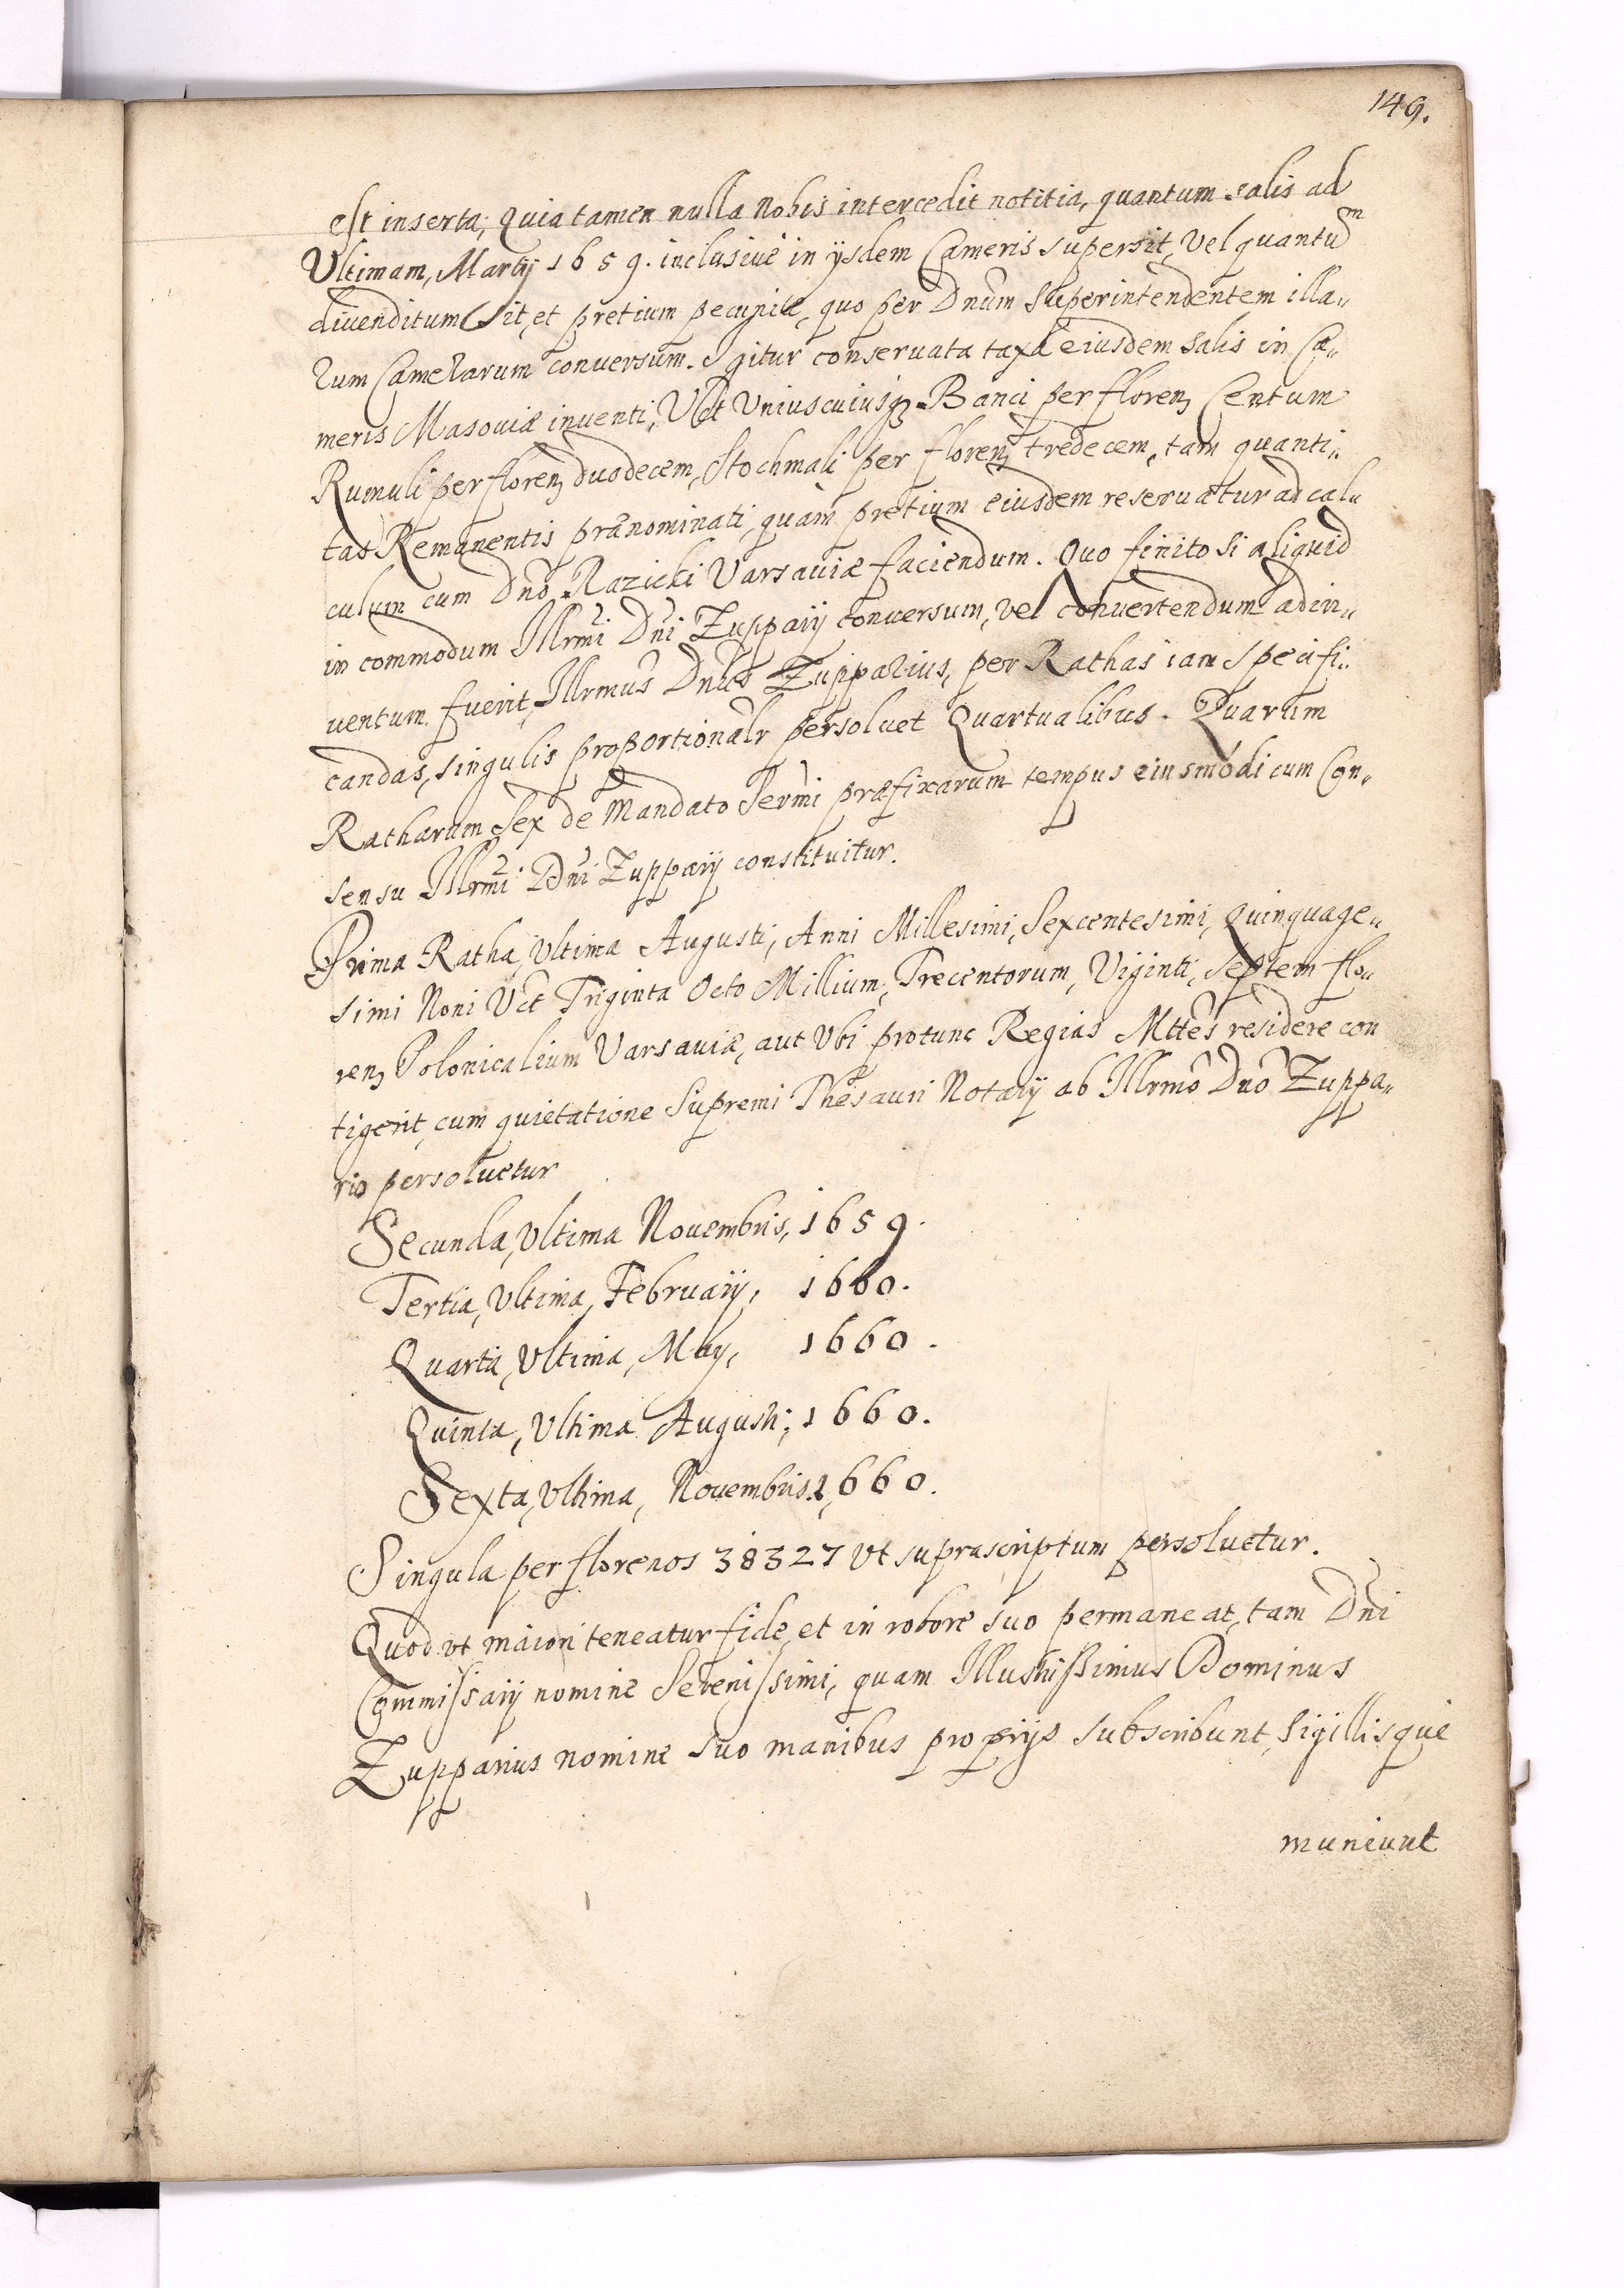 149.
est inserta; Quia tamen nulla Nobis intercedit notitia, quantum salis ad
Ultimam, Martij 1659. inclusiue in ijsdem Cameris supersit, Vel quantũm
diuenditum sit, et pretium pecuniæ, quo per Dnum Superintendentem illa„
rum Camerarum conuersum. Igitur conseruata taxa eiusdem salis in Ca„
meris Masouiæ inuenti, Vdt Vniuscuiusq; Banci per floren Centum
Rumuli per floren duodecem, Stochmali per floren tredecem, tam quanti„
tas Remanentis prænominati, quam pretium eiusdem reseruatur ad cal„
culum cum Dno Razicki Varsauiæ faciendum. Quo finito si aliquid
in commodum Illrmi Dni Zupparij conuersum, vel conuertendum adin„
uentum fuerit, Illrmus Dnus Zupparius, per Rathas iam specifi„
candas, singulis proportionalr persoluet Quartualibus. Quarum
Ratharum Sex de Mandato Sermi præfixarum tempus eiusmodi cum Con„
sensu Illrmi Dni Zupparij constituitur.
Prima Ratha, Vltima Augusti, Anni Millesimi, Sexcentesimi, Quinquage„
simi Noni Vdt Triginta Octo Millium, Trecentorum, Viginti, Septem flo„
ren Polonicalium Varsauiæ, aut Vbi protunc Regias Mttes residere con
tigerit, cum quietatione Supremi Thesauri Notarij ab Illrmo Dno Zuppa„
rio persoluetur
Secunda, Vltima Nouembris, 1659.
Tertia, Vltima, Februarij, 1660.
Quarta, Vltima, May, 1660.
Quinta, Vltima Augusti, 1660.
Sexta, Vltima, Nouembris, 1660.
Singula per florenos 38327 vt suprascriptum persoluetur.
Quod vt maiori teneatur fide, et in robore suo permaneat, tam Dni
Commissarij nomine Serenissimi, quam Illustrissimus Dominus
Zupparius nomine suo manibus proprijs subscribunt, Sigillisque
muniunt